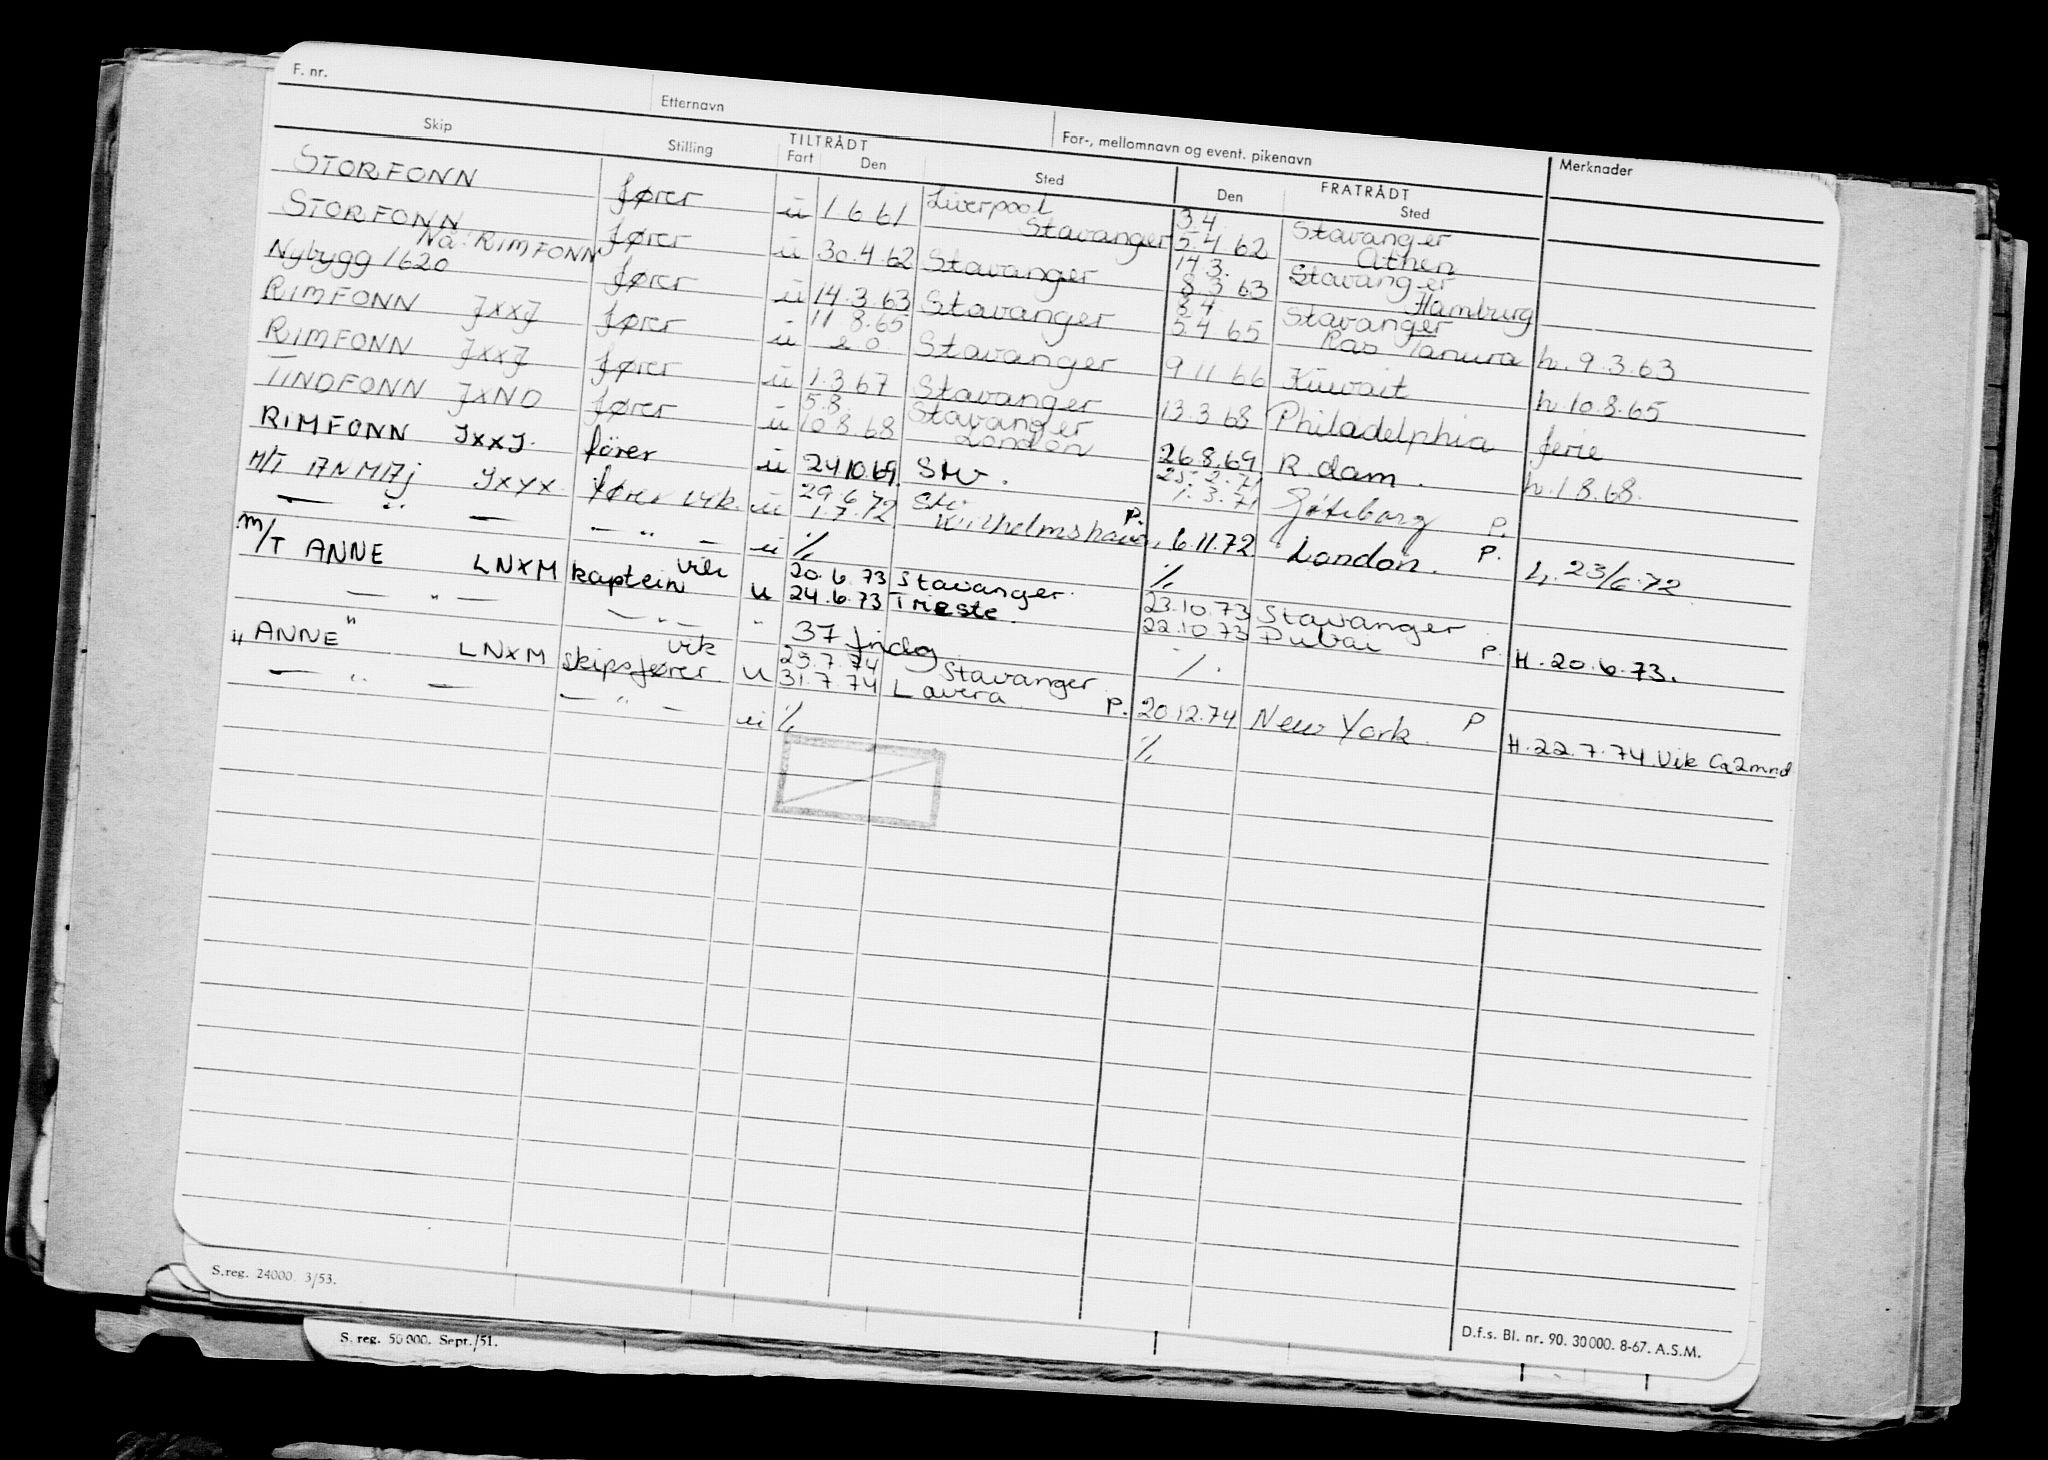 F. nr.
Etternavn
For-, mellomnavn og event. pikenavn
Skip Stilling TILTRÅDT FRATRÅDT Merknader
Fart Den Sted Den Sted
STORFONN fører u 1 6 61 Liverpool 3.4. Stavanger
Stavanger 5.4.62 Athen
STORFONN fører u 30.4.62 Stavanger 14.3. Stavanger
Nå: RIMFONN 8.3.63 Hamburg
Nybygg 1620 fører u 14.3.63 Stavanger 8.4. Stavanger
5.4.65 Ras Tanura h. 9.3.63
RIMFONN JXXJ fører u 11.8.65 Stavanger 9.11.66 Kuwait h 10.8.65
RIMFONN JXXJ fører u 1.3.67 Stavanger 13.3.68 Philadelphia ferie
TINDFONN JXNO fører u 5.8. Stavanger
10.8.68 London 26.8.69 R.dam. h. 1.8.68.
RIMFONN JXXJ. fører u 24.10.69. Stv. 25.2.71
1.3.71 Göteborg P.
M/T JXYX fører vik. u 29.6.72 Stv
1.7.72 Wilhelmshaven P. 6.11.72 London. P. 23/6.72
— " — — " — u % %
M/T ANNE LNXM kaptein vik u 20.6.73 Stavanger. 23.10.73 Stavanger
24.6.73 Trieste. 22.10.73 Dubai P. H. 20.6.73.
— " — — " — " 37 findg %.
"ANNE" LNXM skipsfører vik u 25.7.74 Stavanger
31.7.74 Lavera. P. 20.12.74 New York. P H. 22.7.74 Vik Ca 2 mnd
— " — — " — u % %
S.reg. 24000. 3/53.
S. reg. 50 000. Sept./51.
D.f.s. Bl. nr. 90. 30 000. 8-67. A.S.M.